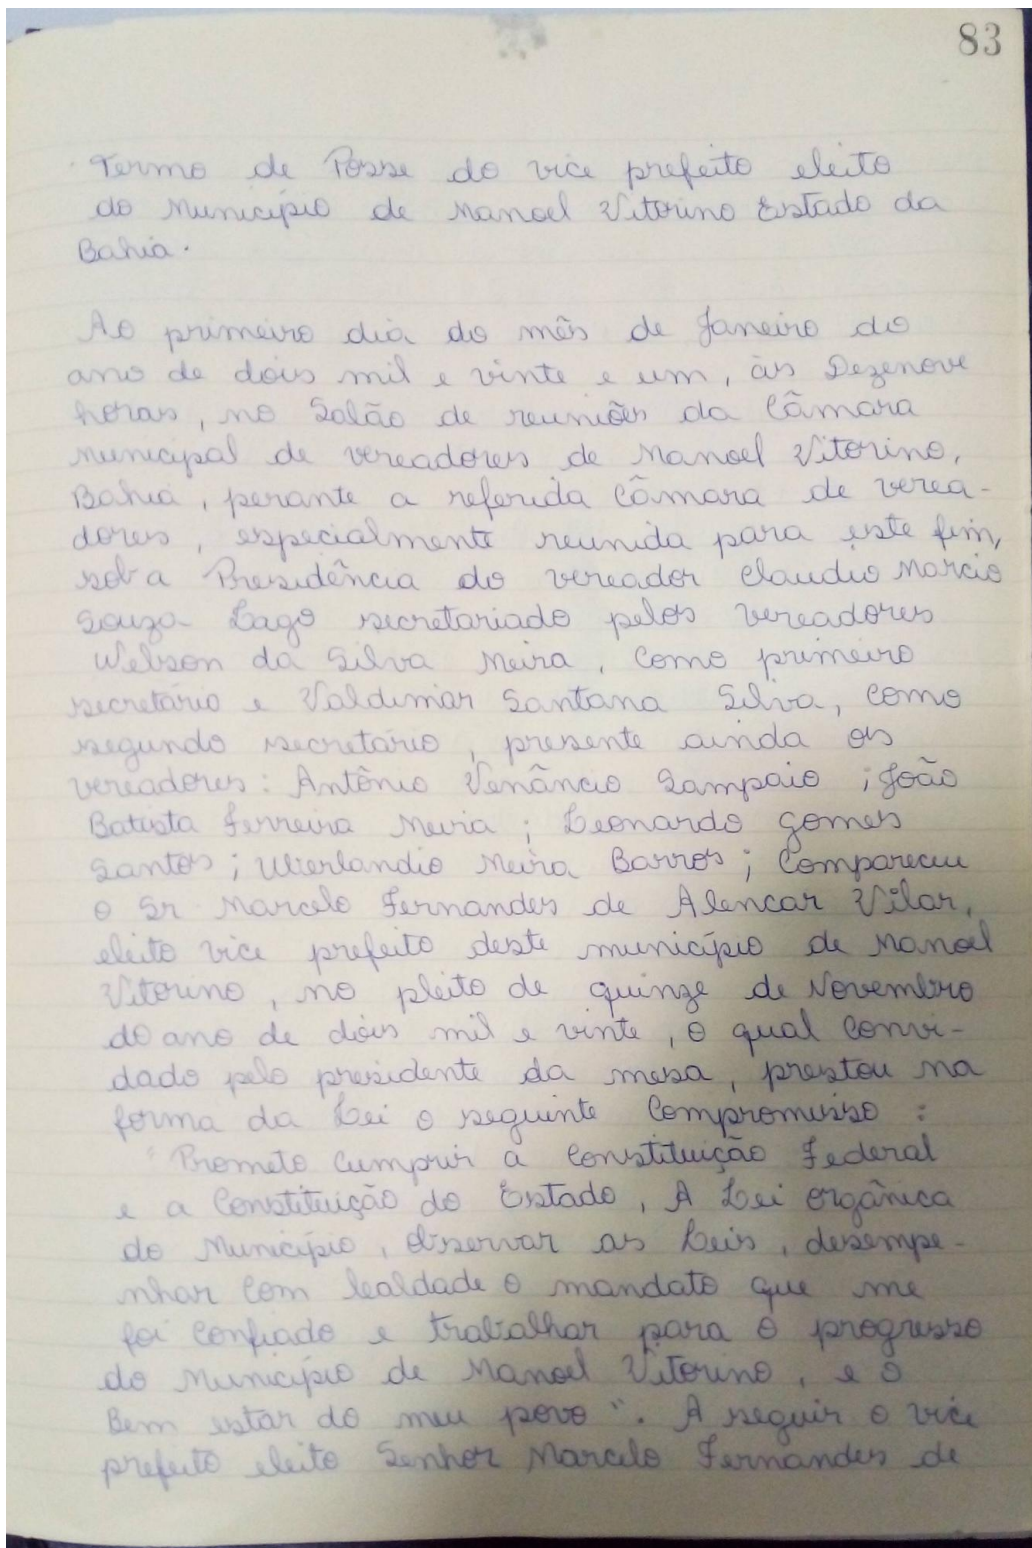 83
Termo de Posse do vice prefeito eleito
do Município de Manoel Vitorino Estado da
Bahia.
Ao primeiro dia do mês de Janeiro do
ano de dois mil e vinte e um, às Dezenove
horas, no Salão de reuniões da Câmara
municipal de vereadores de Manoel Vitorino,
Bahia, perante a referida Câmara de verea-
dores, especialmente reunida para este fim,
sob a Presidência do vereador Claudio Marcio
Souza Lago secretariado pelos vereadores
Welson da Silva Meira, como primeiro
secretário e Valdimar Santana Silva, como
segundo secretário, presente ainda os
vereadores: Antônio Venâncio Sampaio; João
Batista Ferreira Meira; Leonardo Gomes
Santos; Uierlandio Meira Barros; Compareceu
o Sr Marcelo Fernandes de Alencar Vilar,
eleito vice prefeito deste município de Manoel
Vitorino, no pleito de quinze de Novembro
do ano de dois mil e vinte, o qual convi-
dado pelo presidente da mesa, prestou na
forma da Lei o seguinte compromisso:
"Prometo cumprir a Constituição Federal
e a Constituição do Estado, A Lei orgânica
do Município, observar as Leis, desempe-
nhar com lealdade o mandato que me
foi confiado e trabalhar para o progresso
do Município de Manoel Vitorino, e o
Bem estar do meu povo". A seguir o vice
prefeito eleito Senhor Marcelo Fernandes de